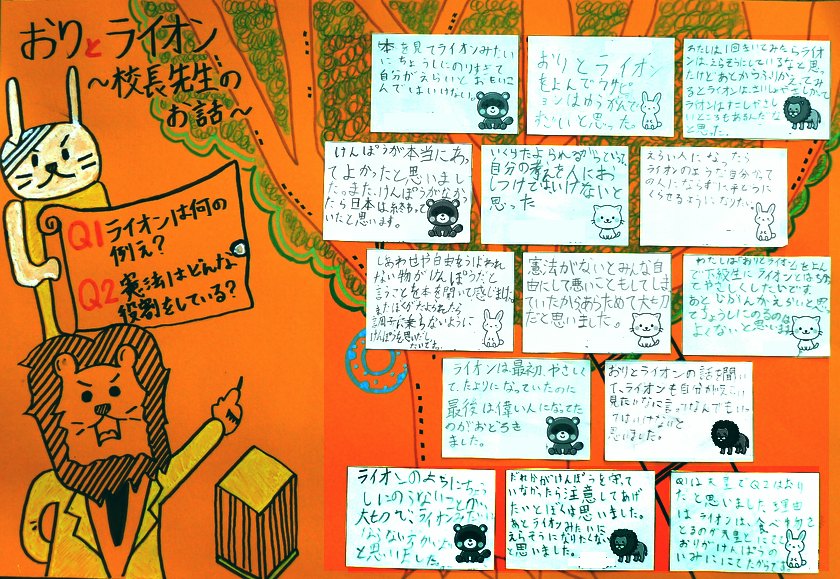 おりとライオン
～校長先生の
お話～
Q1 ライオンは何の
例え？
Q2 憲法はどんな
役割をしている？
本を見てライオンみたい
にちょうしにのりすぎて
自分がえらいとおもいこ
んではいけない。
おりとライオン
をよんでウサピ
ョンはゆうかんで
すごいと思った。
わたしは1回きいてみたらライオ
ンはえらそうにしているなと思っ
たけど
るとライオンはさいしょやさしかって
ライオンはすこしやさし
いところもあるんだな
と思った。
けんぽうが本当にあっ
てよかったと思いまし
た。また、けんぽうがなか
ったら日本は終わって
いたと思います。
いくらたよられるからといって
自分の考えを人にお
しつけてはいけないと
思った
えらい人になったら
ライオンのような自分かって
の人にならずに平とうに
くらせるようになりたい。
しあわせや自由をうばわれ
ない物がけんぽうだと
言うことを本を聞いて感じました。
またぼくがたよられたら
調子に乗らないように
けんぽうを思いだし
たいです。
憲法がないとみんな自
由にして悪いこともしてしま
っていたからあらためて大切
だと思いました。
わたしは「おりとライオン」をよん
で下級生にライオンとはちがっ
てやさしくしたいです。
あとじぶんがえらいと思っ
てちょうしにのるのは
よくないと思います。
ライオンは最初、やさしく
て、たよりになっていたのに
最後は偉い人になってた
のがおどろき
ました。
おりとライオンの話を聞い
て、ライオンも自分がえらい
見たいなに言ってなんでもいっ
てはいけないと
思いました。
ライオンのようにちょう
しにのらないことが
大切で、ライオンみたいに
ならない方がいい
と思いました。
だれかがけんぽうを守って
いなかったら注意してあげ
たいとぼくは思いました。
あとライオンみたいに
えらそうになりたくない
と思いました。
Q1は天皇でQ2はおり
だと思いました理由
はライオンは、食べ物を
とるのが天皇とにてて
おりがけんぽうの
いみににてたからです